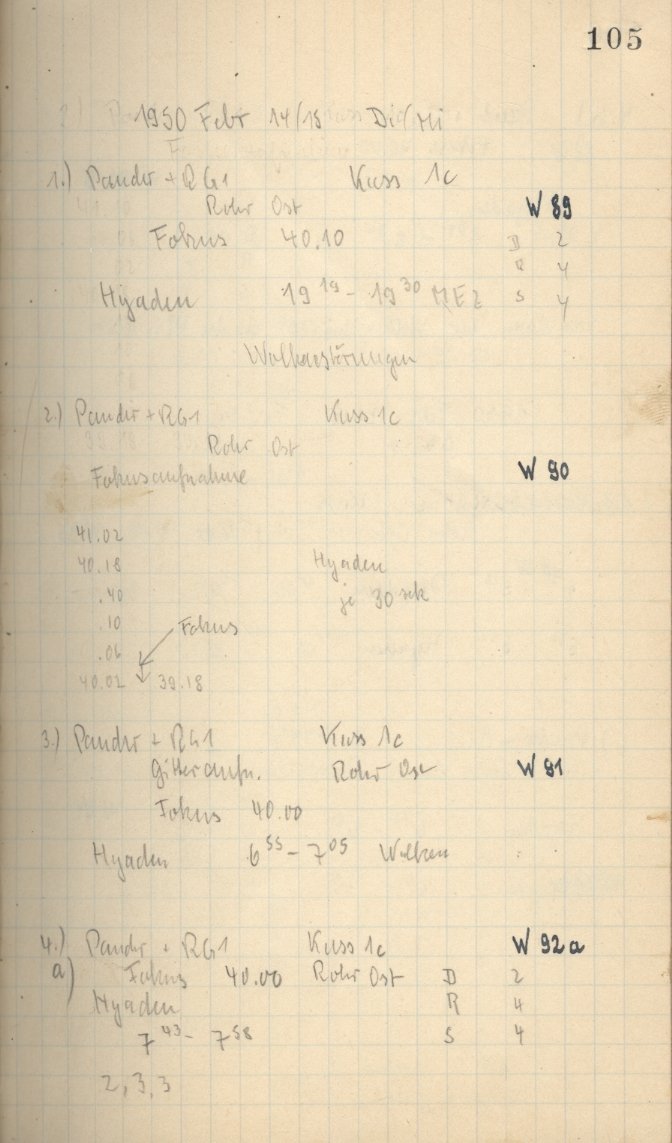 105
1950 Febr 14/15 Di/Mi
1.) Pander + RG1 Kass 1c
Rohr Ost W 89
Fokus 40.10 D 2
R 4
Hyaden 19 19 - 19 30 MEZ S 4
Wolkenstörungen
2.) Pander + RG1 Kass 1c
Rohr Ost
Fokusaufnahme W 90
41.02
40.18 Hyaden
.40 je 30 sek
.10 Fokus
.06
40.02 39.18
3.) Pander + RG1 Kass 1c
Gitteraufn. Rohr Ost W 91
Fokus 40.00
Hyaden 6 55 - 7 05 Wolken
4.) Pander + RG1 Kass 1c W 92a
a) Fokus 40.00 Rohr Ost D 2
Hyaden R 4
7 43 - 7 58 S 4
2, 3, 3